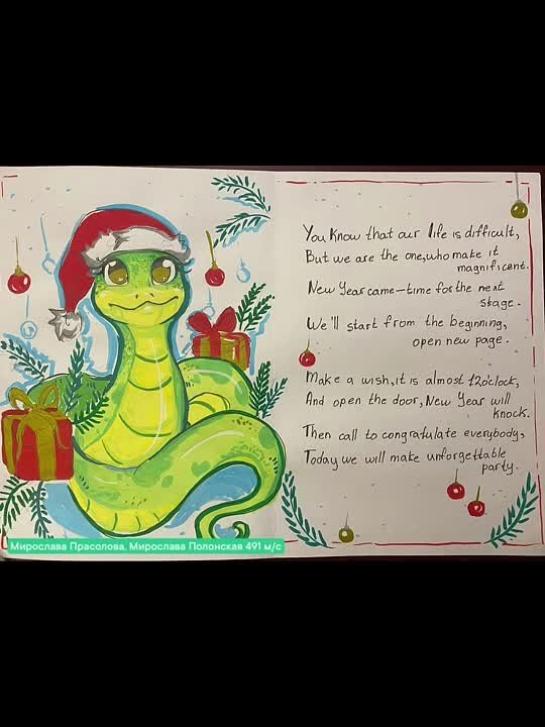 You know that our life is difficult,
But we are the one, who make it
magnificent.
New Year came – time for the next
stage.
We'll start from the beginning,
open new page.
Make a wish, it is almost 12o'clock,
And open the door, New Year will
knock.
Then call to congratulate everybody,
Today we will make unforgettable
party.
Мирослава Прасолова, Мирослава Полонская 491 м/с